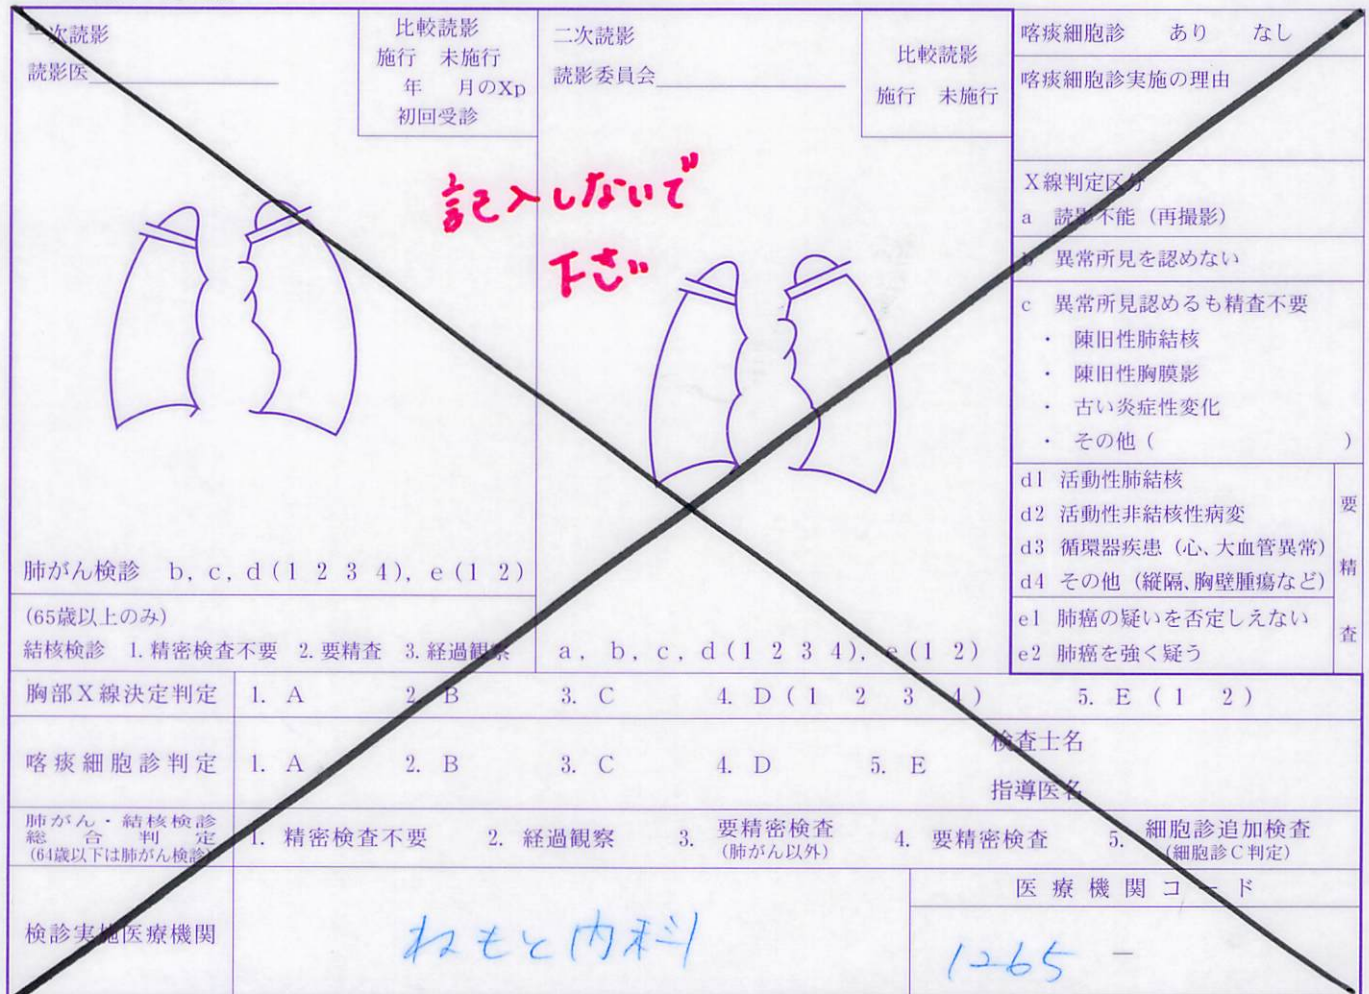 一次読影
読影医
比較読影
施行 未施行
年 月のXp
初回受診
二次読影
読影委員会
比較読影
施行 未施行
喀痰細胞診 あり なし
喀痰細胞診実施の理由
記入しないで
下さい
X線判定区分
a 読影不能（再撮影）
b 異常所見を認めない
c 異常所見認めるも精査不要
・ 陳旧性肺結核
・ 陳旧性胸膜影
・ 古い炎症性変化
・ その他（ ）
d1 活動性肺結核
d2 活動性非結核性病変
d3 循環器疾患（心、大血管異常）
d4 その他（縦隔、胸壁腫瘍など）
e1 肺癌の疑いを否定しえない
e2 肺癌を強く疑う
要精査
肺がん検診 b, c, d(1 2 3 4), e(1 2)
(65歳以上のみ)
結核検診 1. 精密検査不要 2. 要精査 3. 経過観察
a, b, c, d(1 2 3 4), e(1 2)
胸部X線決定判定 1. A 2. B 3. C 4. D(1 2 3 4) 5. E(1 2)
喀痰細胞診判定 1. A 2. B 3. C 4. D 5. E
検査士名
指導医名
肺がん・結核検診
総合判定
(64歳以下は肺がん検診)
1. 精密検査不要 2. 経過観察 3. 要精密検査 4. 要精密検査 5. 細胞診追加検査
(肺がん以外) (細胞診C判定)
検診実施医療機関
ねもと内科
医療機関コード
1265 -